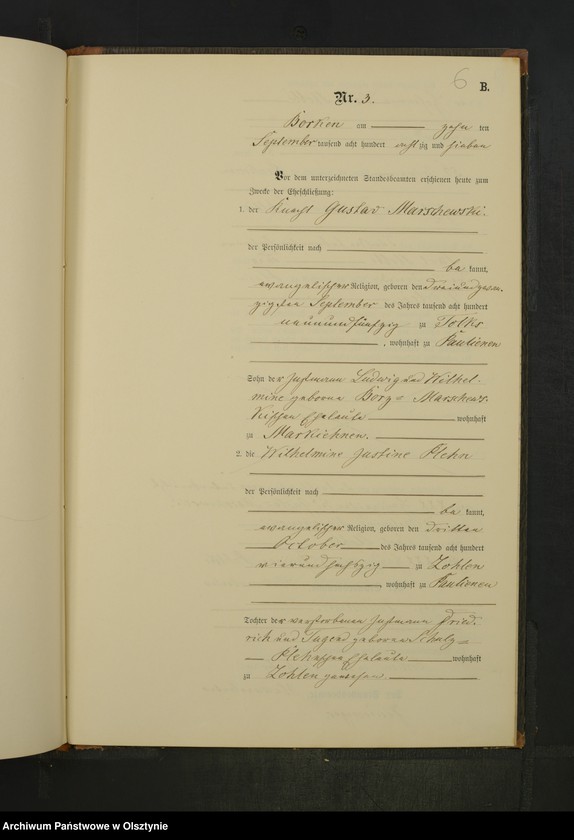 6
B.
Nr. 3.
Borken am zehn ten
September tausend acht hundert acht zig und sieben
Vor dem unterzeichneten Standesbeamten erschienen heute zum
Zwecke der Eheschließung:
1. der Knecht Gustav Marschewski.
der Persönlichkeit nach
be kannt,
evangelischer Religion, geboren den dreiundzwan-
zigsten September des Jahres tausend acht hundert
neunundfünfzig zu Tolks
, wohnhaft zu Paulienen
Sohn der Instmann Ludwig und Wilhel-
mine geborene Borz= Marschews-
kischen Eheleute wohnhaft
zu Markiehnen.
2. die Wilhelmine Justine Plehn
der Persönlichkeit nach
be kannt,
evangelischer Religion, geboren den dritten
October des Jahres tausend acht hundert
vierundsechszig zu Zohlen
, wohnhaft zu Paulienen
Tochter der verstorbenen Instmann Fried-
rich und geborene Schulz=
Plehnschen Eheleute wohnhaft
zu Zohlen gewesen.
Archiwum Państwowe w Olsztynie